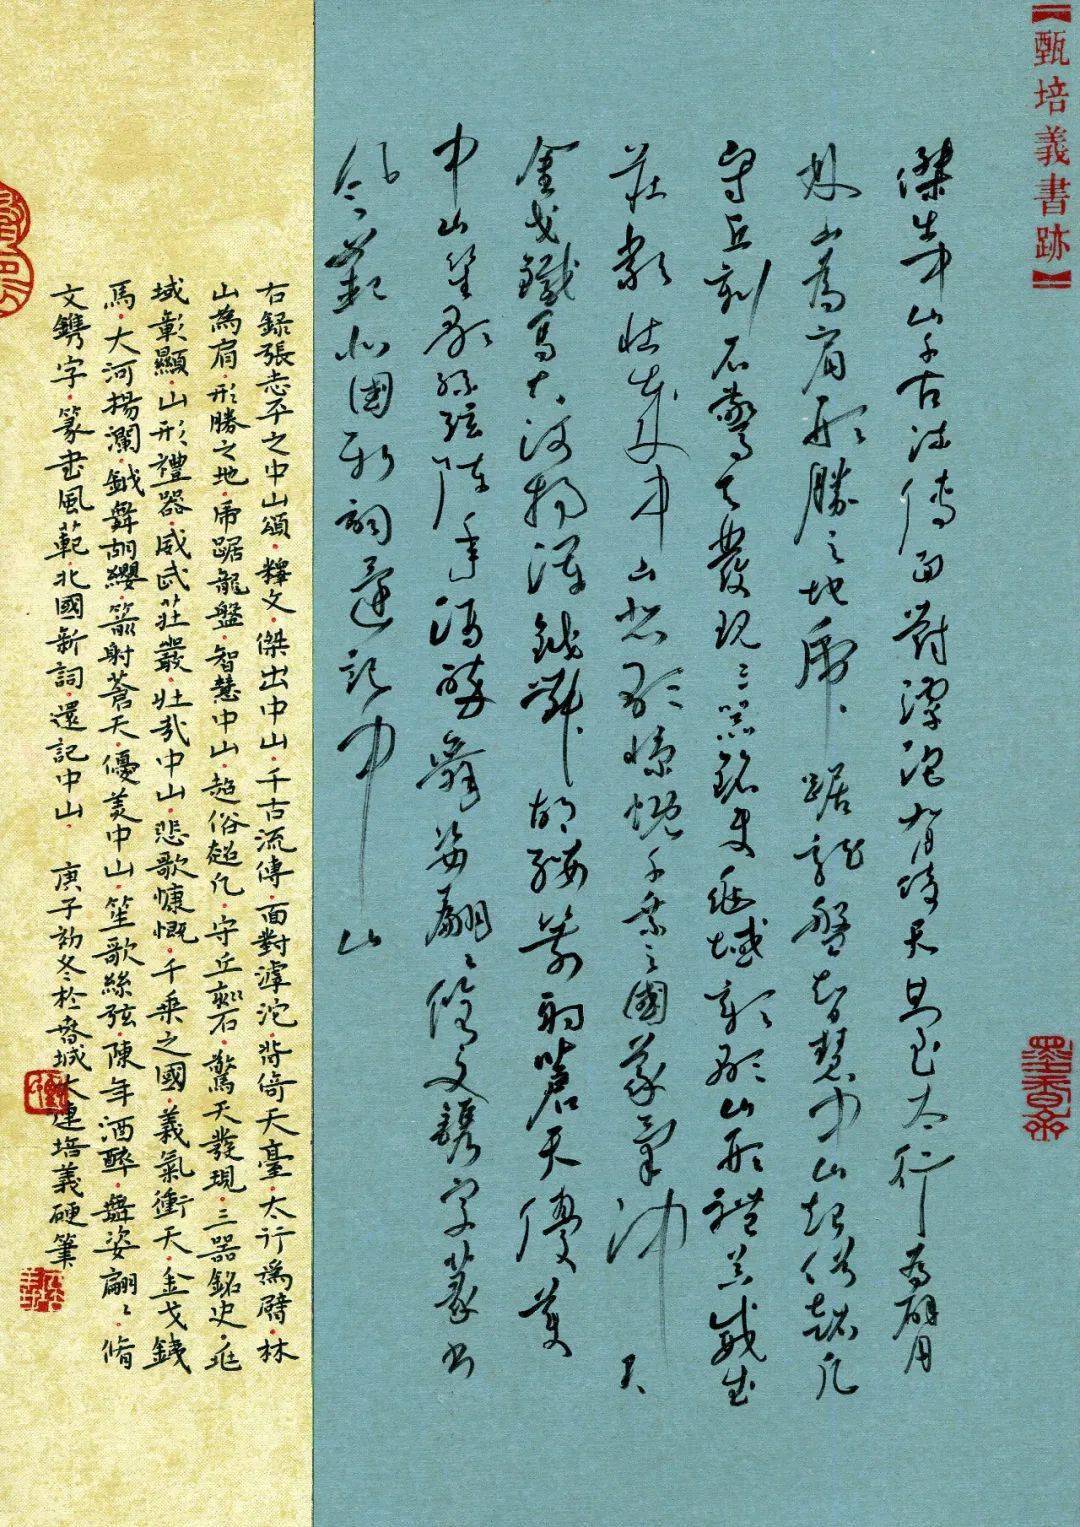 【甄培義書跡】
傑出中山千古流傳面對滹沱背倚天臺太行為臂
林山為肩形勝之地虎踞龍盤智慧中山超俗超凡
守丘刻石驚天發現三器銘史兆域彰顯山形禮器威武
莊嚴壯哉中山悲歌慷慨千乘之國義氣沖天
金戈鐵馬大河揚瀾鉞舞胡纓箭射蒼天優美
中山笙歌絲弦陳年酒醉舞姿翩〻脩文鐫字篆書
風範北國新詞還記中山
右錄張志平之中山頌·釋文·傑出中山·千古流傳·面對滹沱·背倚天臺·太行為臂·林
山為肩·形勝之地·虎踞龍盤·智慧中山·超俗超凡·守丘刻石·驚天發現·三器銘史·兆
域彰顯·山形禮器·威武莊嚴·壯哉中山·悲歌慷慨·千乘之國·義氣衝天·金戈鐵
馬·大河揚瀾·鉞舞胡纓·箭射蒼天·優美中山·笙歌絲弦·陳年酒醉·舞姿翩〻·脩
文鐫字·篆書風範·北國新詞·還記中山· 庚子初冬於春城大連培義硬筆